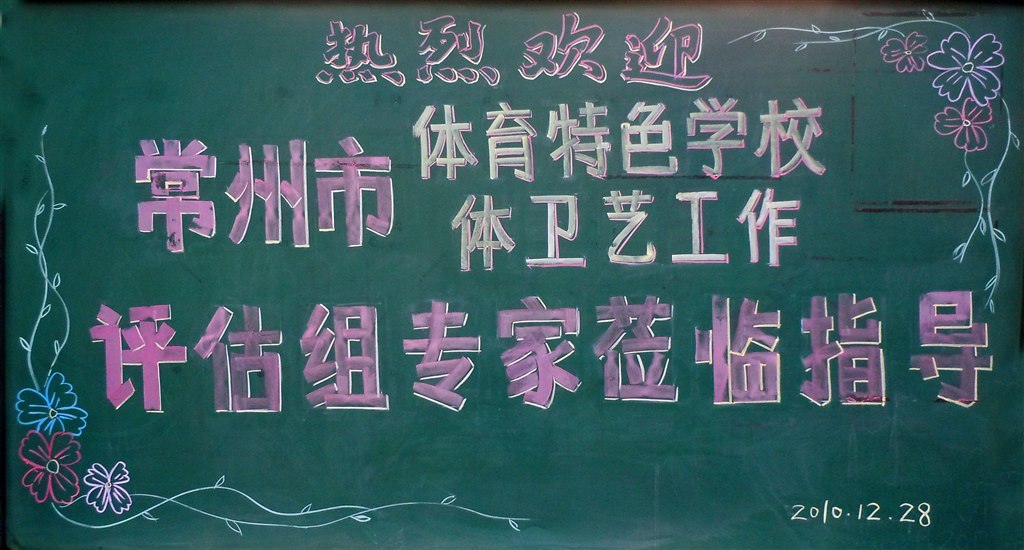 热烈欢迎
常州市
体育特色学校
体卫艺工作
评估组专家莅临指导
2010.12.28